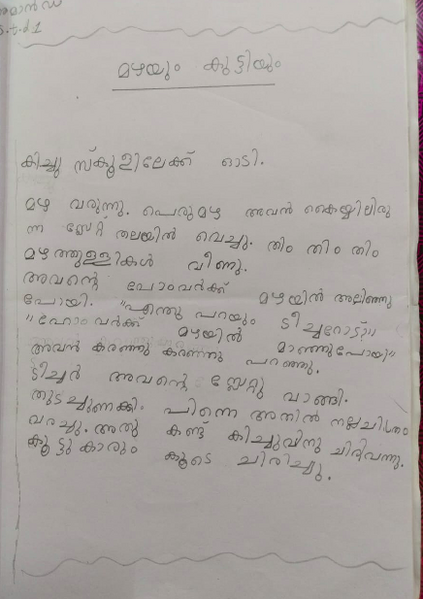 std 1
മഴയും കുട്ടിയും
കിച്ചു സ്കൂളിലേക്ക് ഓടി.
മഴ വരുന്നു. പെരുമഴ അവൻ കൈയ്യിലിരു
ന്ന സ്ലേറ്റ് തലയിൽ വെച്ചു. തിം തിം തിം
മഴത്തുള്ളികൾ വീണു.
അവന്റെ ഹോംവർക്ക് മഴയിൽ അലിഞ്ഞു
പോയി. "എന്തു പറയും ടീച്ചറോട്?"
"ഹോംവർക്ക് മഴയിൽ മാഞ്ഞുപോയി"
അവൻ കരഞ്ഞു കരഞ്ഞു പറഞ്ഞു.
ടീച്ചർ അവന്റെ സ്ലേറ്റു വാങ്ങി.
തുടച്ചുണക്കി. പിന്നെ അതിൽ നല്ലചിത്രം
വരച്ചു. അതു കണ്ട് കിച്ചുവിനു ചിരിവന്നു.
കൂട്ടുകാരും കൂടെ ചിരിച്ചു.